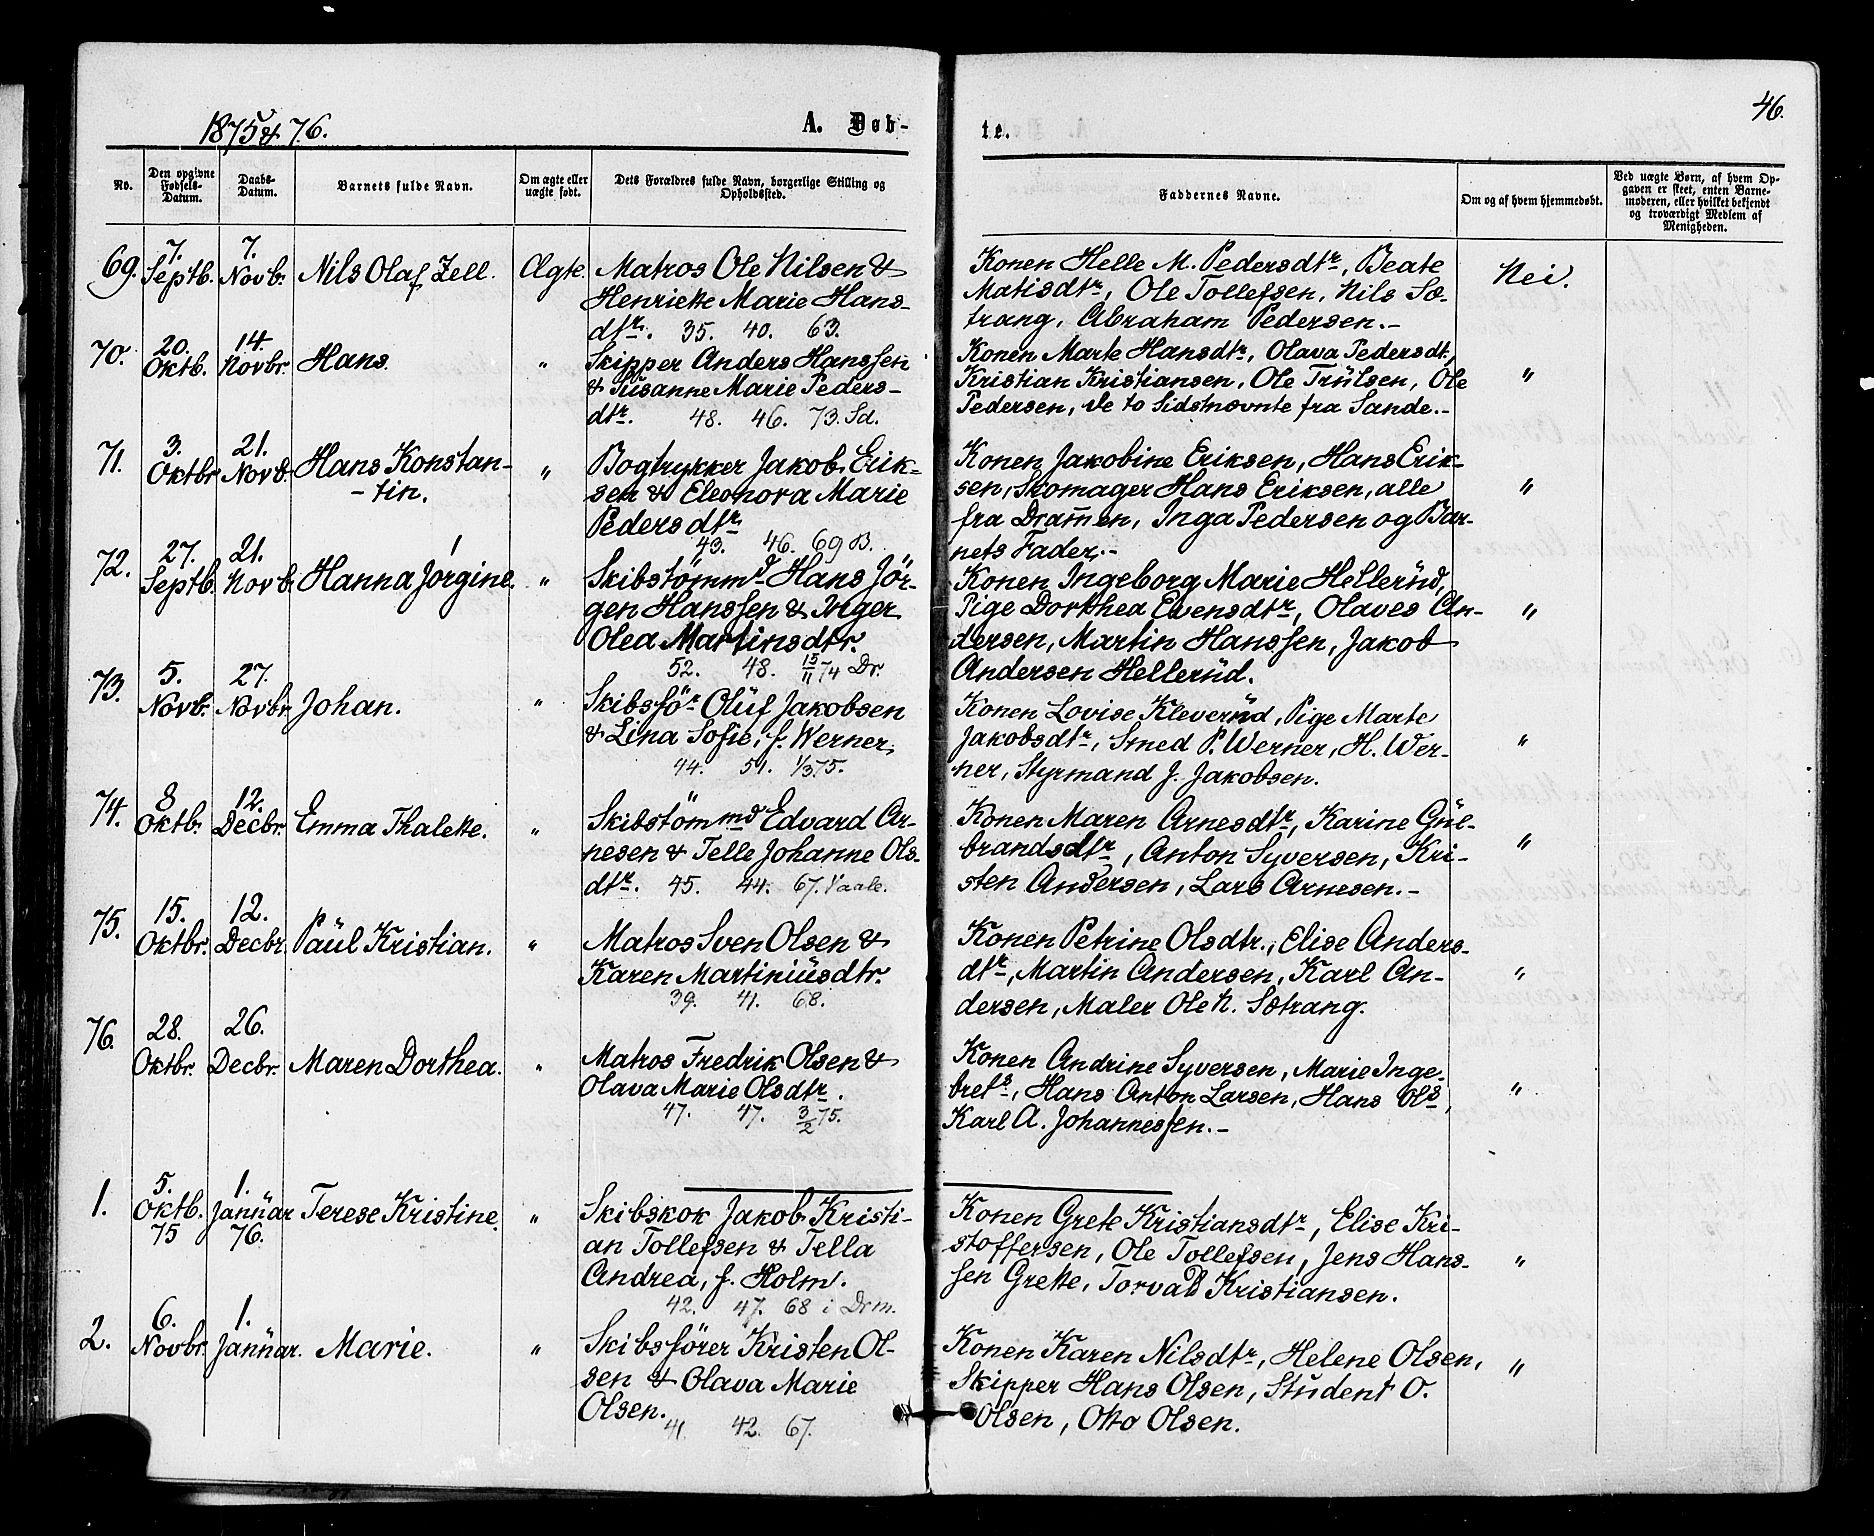 1875 & 76.
A. Døb-
te.
46.
No.
Den opgivne Fødsels-Datum.
Daabs-Datum.
Barnets fulde Navn.
Om ægte eller uægte født.
Dets Forældres fulde Navn, borgerlige Stilling og Opholdssted.
Faddernes Navne.
Om og af hvem hjemmedøbt.
Ved uægte Børn, af hvem Op-
gaven er skeet, enten Barne-
moderen, eller hvilket bekjendt
og troværdigt Medlem af
Menigheden.
69. 7. Septb. 7. Novb. Nils Olaf Zell. Ægte. Matros Ole Nilsen &
Henriette Marie Hans-
dtr. 35. 40. 63.
Konen Helle M. Pedersdtr, Beate
Matisdtr, Ole Tollefsen, Nils Sæ-
trang, Abraham Pedersen.-
Nei.
70. 20. Oktb. 14. Novbr. Hans. " Skipper Anders Hanssen
& Susanne Marie Peders-
dtr. 48. 46. 73. Sd.
Konen Marte Hansdtr, Olava Pedersdt,
Kristian Kristiansen, Ole Trülsen, Ole
Pedersen, de to Sidstnævnte fra Sande.-
"
71. 3. Oktbr 21. Novb. Hans Konstan-
-tin. " Bogtrykker Jakob Erik-
sen & Eleonora Marie
Pedersdtr.
43. 46. 69 B.
Konen Jakobine Eriksen, Hans Erik-
sen, Skomager Hans Eriksen, alle
fra Dram̄en, Inga Pedersen og Bar-
nets Fader.-
"
72. 27. Septb. 21. Novb. Hanna Jørgine. " Skibstømmd Hans Jör-
gen Hanssen & Inger
Olea Martinsdtr.
52. 48. 15/11 74 Dr.
Konen Ingeborg Marie Hellerüd,
Pige Dorthea Evensdtr, Olaves An-
dersen, Martin Hanssen, Jakob
Andersen Hellerüd.
"
73. 5. Novb. 27. Novbr Johan. " Skibsför Olüf Jakobsen
& Lina Sofie, f. Werner.
44. 51. 1/3 75.
Konen Lovise Kleverüd, Pige Marte
Jakobsdtr, Smed P. Werner, H. Wer-
ner, Styrmand J. Jakobsen.
"
74. 8 Oktb. 12. Decbr. Emma Thalette. " Skibstömmd Edvard Ar-
nesen & Telle Johanne Ols-
dtr. 45. 44. 67. Vaale.
Konen Maren Arnesdtr, Karine Gül-
brandsdtr, Anton Syversen, Kri-
sten Andersen, Lars Arnesen.-
"
75. 15. Oktbr. 12. Decbr. Paül Kristian. " Matros Sven Olsen &
Karen Martiniüsdtr.
39. 41. 68.
Konen Petrine Olsdtr., Elise Anders-
dtr, Martin Andersen, Karl An-
dersen, Maler Ole N. Sætrang.
"
76. 28. Oktbr. 26. Decbr. Maren Dorthea. " Matros Fredrik Olsen &
Olava Marie Olsdtr.
47. 47. 3/2 75.
Konen Andrine Syversen, Marie Inge-
brets, Hans Anton Larsen, Hans Ols,
Karl A. Johannessen.-
"
1. 5. Oktb. 75 1. Janüar 76. Terese Kristine. " Skibskok Jakob Kristi-
an Tollefsen & Tella
Andrea, f. Holm.
42. 47. 68 i Drm.
Konen Grete Kristiansdtr, Elise Kri-
stoffersen, Ole Tollefsen, Jens Hans-
sen Grette, Torvald Kristiansen.
"
2. 6. Novbr. 1. Janüar. Marie. " Skibsförer Kristen Ol-
sen & Olava Marie
Olsen.
41. 42. 67.
Konen Karen Nilsdtr, Helene Olsen,
Skipper Hans Olsen, Stüdent O.
Olsen, Otto Olsen.
"